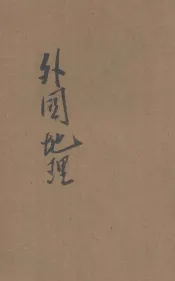 外国地理